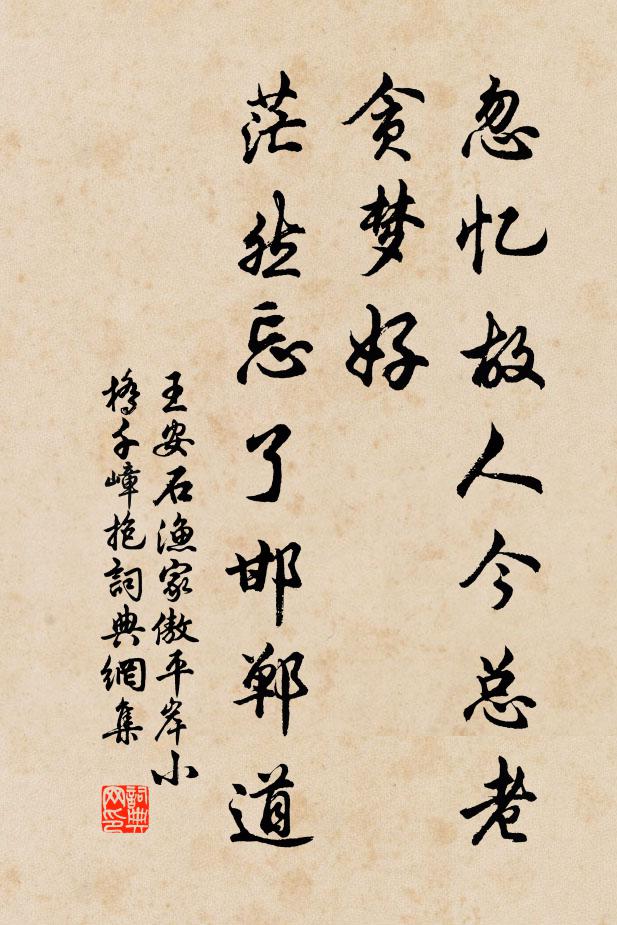 忽忆故人今总老
贪梦好
茫然忘了邯郸道
王安石渔家傲平岸小
橋千嶂抱詞典網集
詞典网印